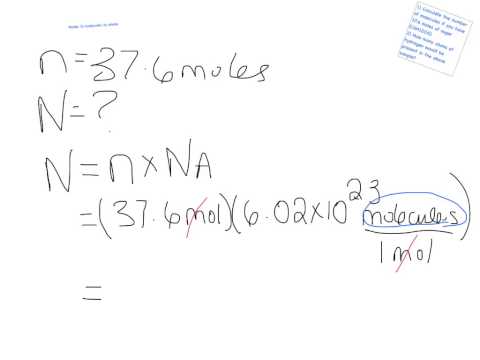 1) Calculate the number
of molecules if you have
37.6 moles of sugar
2) How many atoms of
hydrogen would be
present in the above
sample?
n = 37.6 moles
N = ?
N = n × NA
= (37.6 mol)(6.02 × 10²³ molecules)
1 mol
=